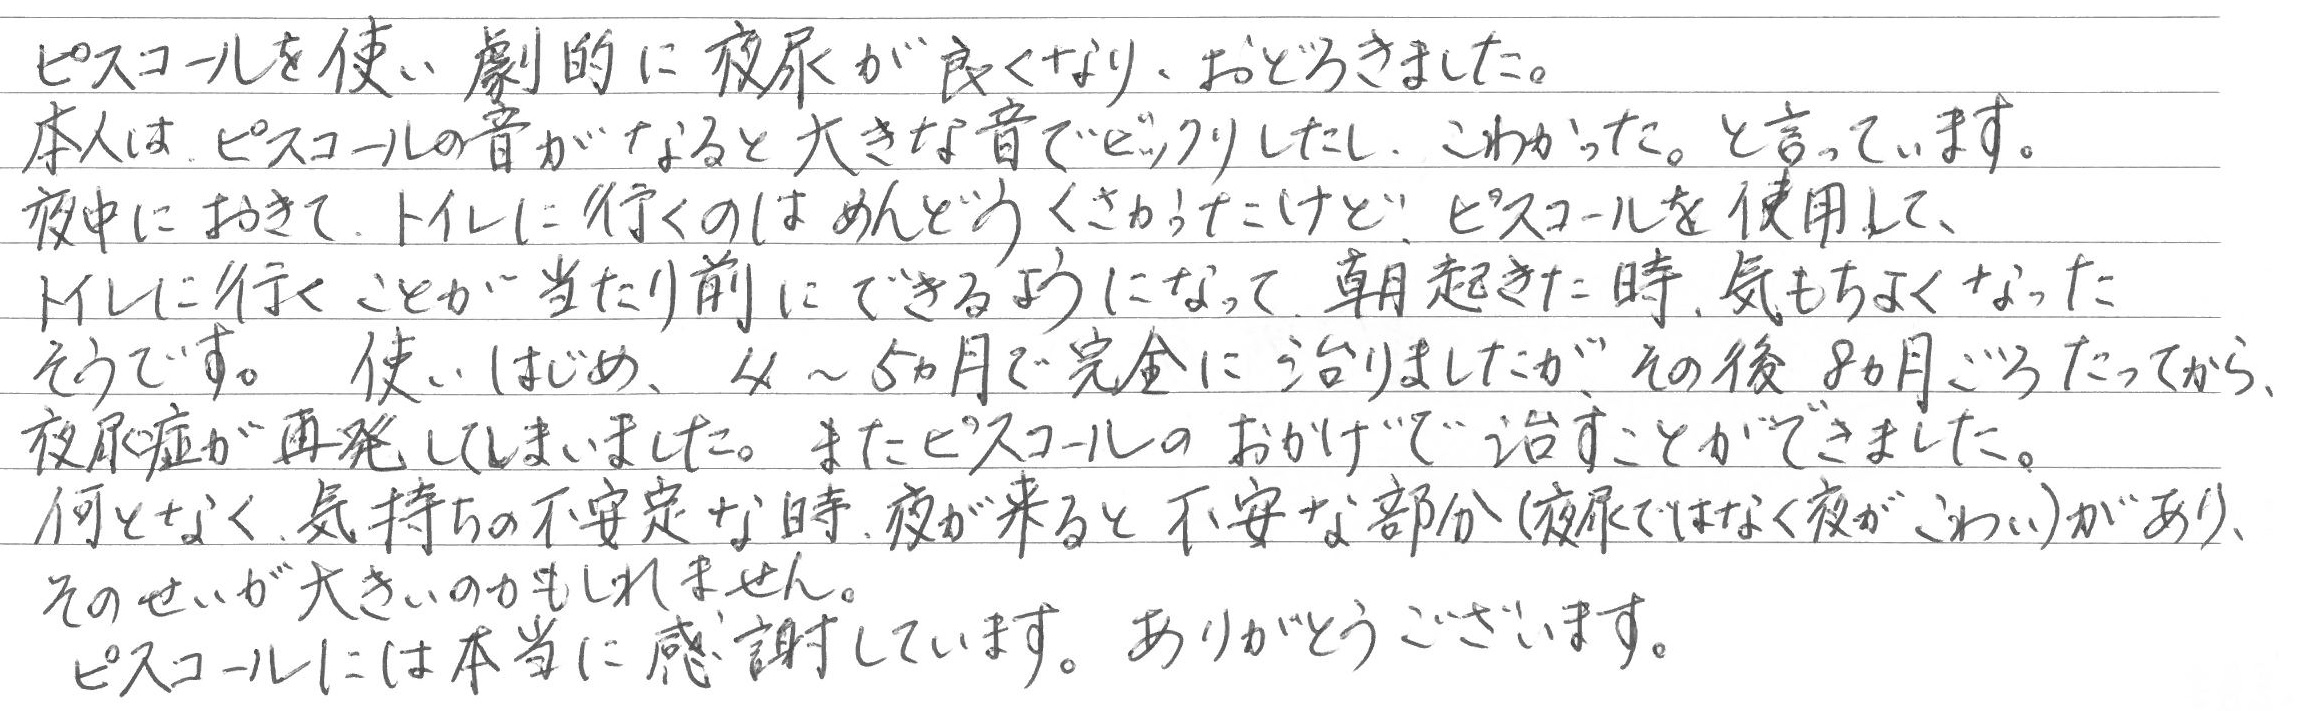 ピスコールを使い劇的に夜尿が良くなり、おどろきました。
本人は、ピスコールの音がなると大きな音でビックリしたし、こわかった。と言っています。
夜中におきて、トイレに行くのはめんどうくさかったけど、ピスコールを使用して、
トイレに行くことが当たり前にできるようになって、朝起きた時、気もちよくなった
そうです。 使いはじめ、4～5ヵ月で完全に治りましたが、その後8ヵ月ごろたってから、
夜尿症が再発してしまいました。またピスコールのおかげで治すことができました。
何となく、気持ちの不安定な時、夜が来ると不安な部分(夜尿ではなく夜がこわい)があり、
そのせいが大きいのかもしれません。
ピスコールには本当に感謝しています。ありがとうございます。